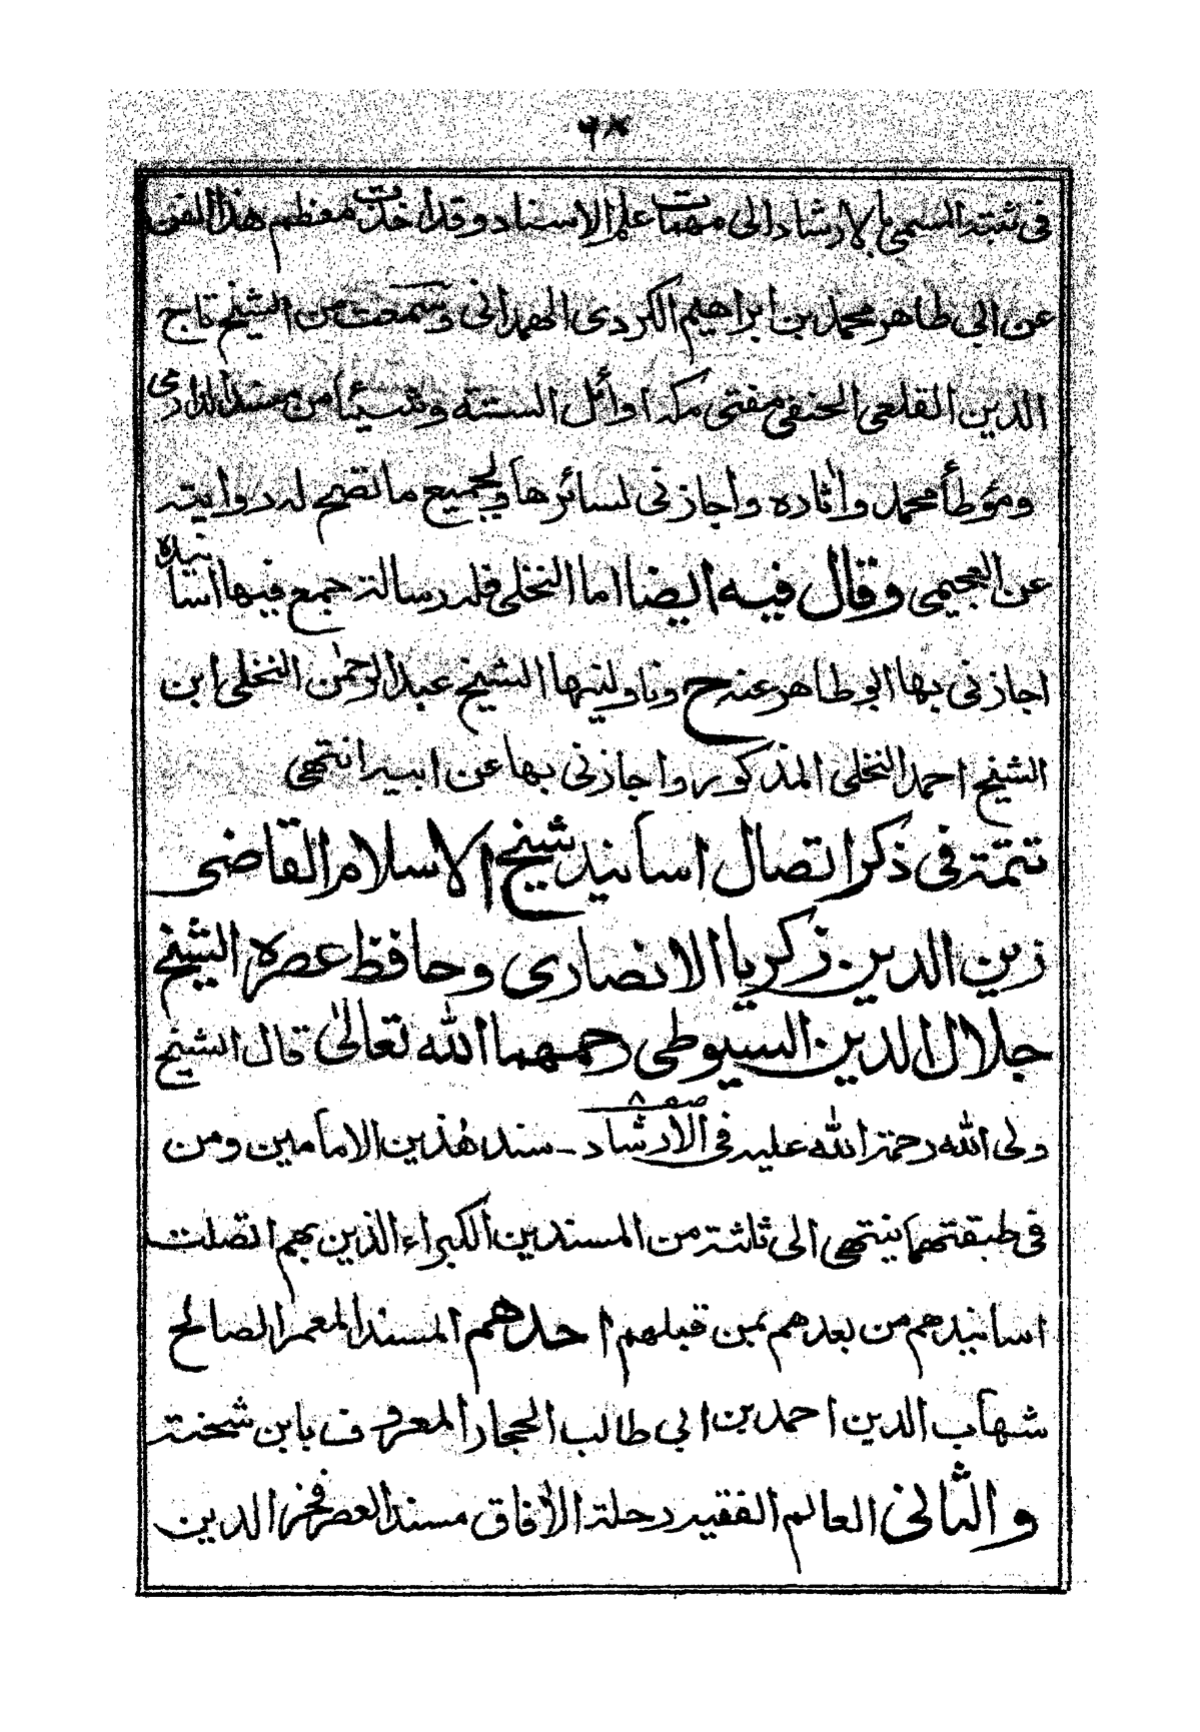 ٦٨
فى ثبته السمى بالارشاد الى مهمات علم الاسناد وقد اخذت معظم هذا الفن
عن ابى طاهر محمد بن ابراهيم الكردى المدنى وسمعت من الشيخ تاج
الدين القلعى الحنفى مفتى مكة اوائل الستة وشيئا من مسند الدارمى
ومؤطأ محمد واٰثاره واجازنى لسائرها ولجميع ما تصح له روايته
عن العجيمى وقال فيه ايضا اما النخلى فله رسالة جمع فيها اسانيده
اجازنى بها ابو طاهر عنه ح وناولنيها الشيخ عبد الرحمٰن النخلى ابن
الشيخ احمد النخلى المذكور واجازنى بها عن ابيه انتهى
تتمة فى ذكر اتصال اسانيد شيخ الاسلام القاضى
زين الدين زكريا الانصارى وحافظ عصره الشيخ
جلال الدين السيوطى رحمهما الله تعالىٰ قال الشيخ
ولى الله رحمة الله عليه فى الارشاد صـ ٨ - سند هٰذين الامامين ومن
فى طبقتهما ينتهى الى ثلثة من المسندين الكبراء الذين بهم اتصلت
اسانيدهم من بعدهم بمن قبلهم احدهم المسند المعمر الصالح
شهاب الدين احمد بن ابى طالب الحجار المعروف بابن شحنة
والثانى العالم الفقيه رحلة الاٰفاق مسند العصر فخر الدين